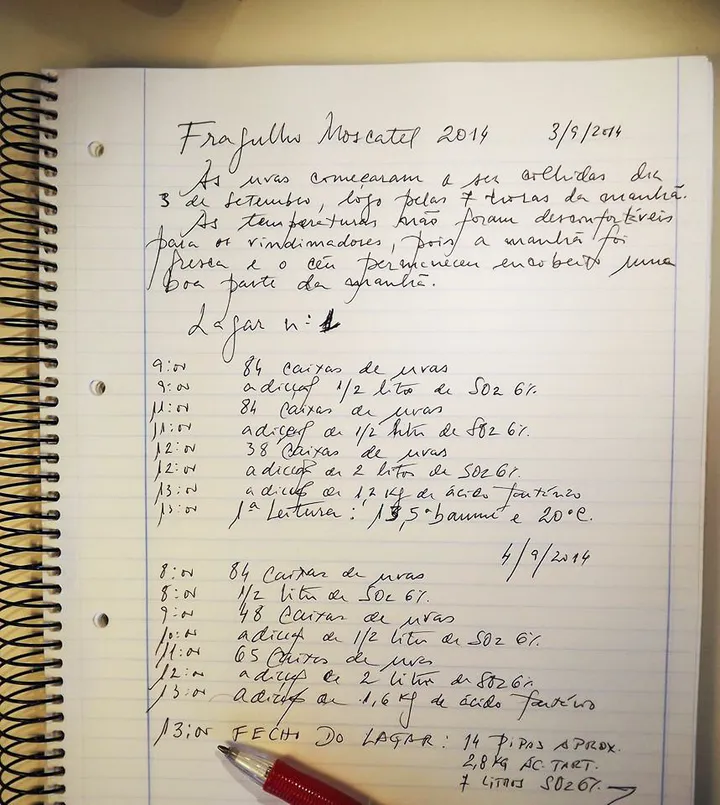 Fragulho Moscatel 2014 3/9/2014
As uvas começaram a ser colhidas dia
3 de Setembro, logo pelas 7 horas da manhã.
As temperaturas não foram desconfortáveis
para os vindimadores, pois a manhã foi
fresca e o céu permaneceu encoberto uma
boa parte da manhã.
Lagar nº: 1
9:00 84 caixas de uvas
9:00 adição 1/2 litro de SO2 6%
11:00 84 caixas de uvas
11:00 adição de 1/2 litro de SO2 6%.
12:00 38 caixas de uvas
12:00 adição de 2 litros de SO2 6%.
13:00 adição de 1,2 Kg de ácido tartárico
13:00 1ª Leitura: 13,5º baumé e 20ºC.
4/9/2014
8:00 84 caixas de uvas
8:00 1/2 litro de SO2 6%.
9:00 48 caixas de uvas
10:00 adição de 1/2 litro de SO2 6%.
11:00 65 caixas de uvas
12:00 adição de 2 litros de SO2 6%.
13:00 adição de 1,6 Kg de ácido tartárico
13:00 FECHO DO LAGAR: 14 PIPAS APROX.
2,8 KG AC. TART.
7 LITROS SO2 6%